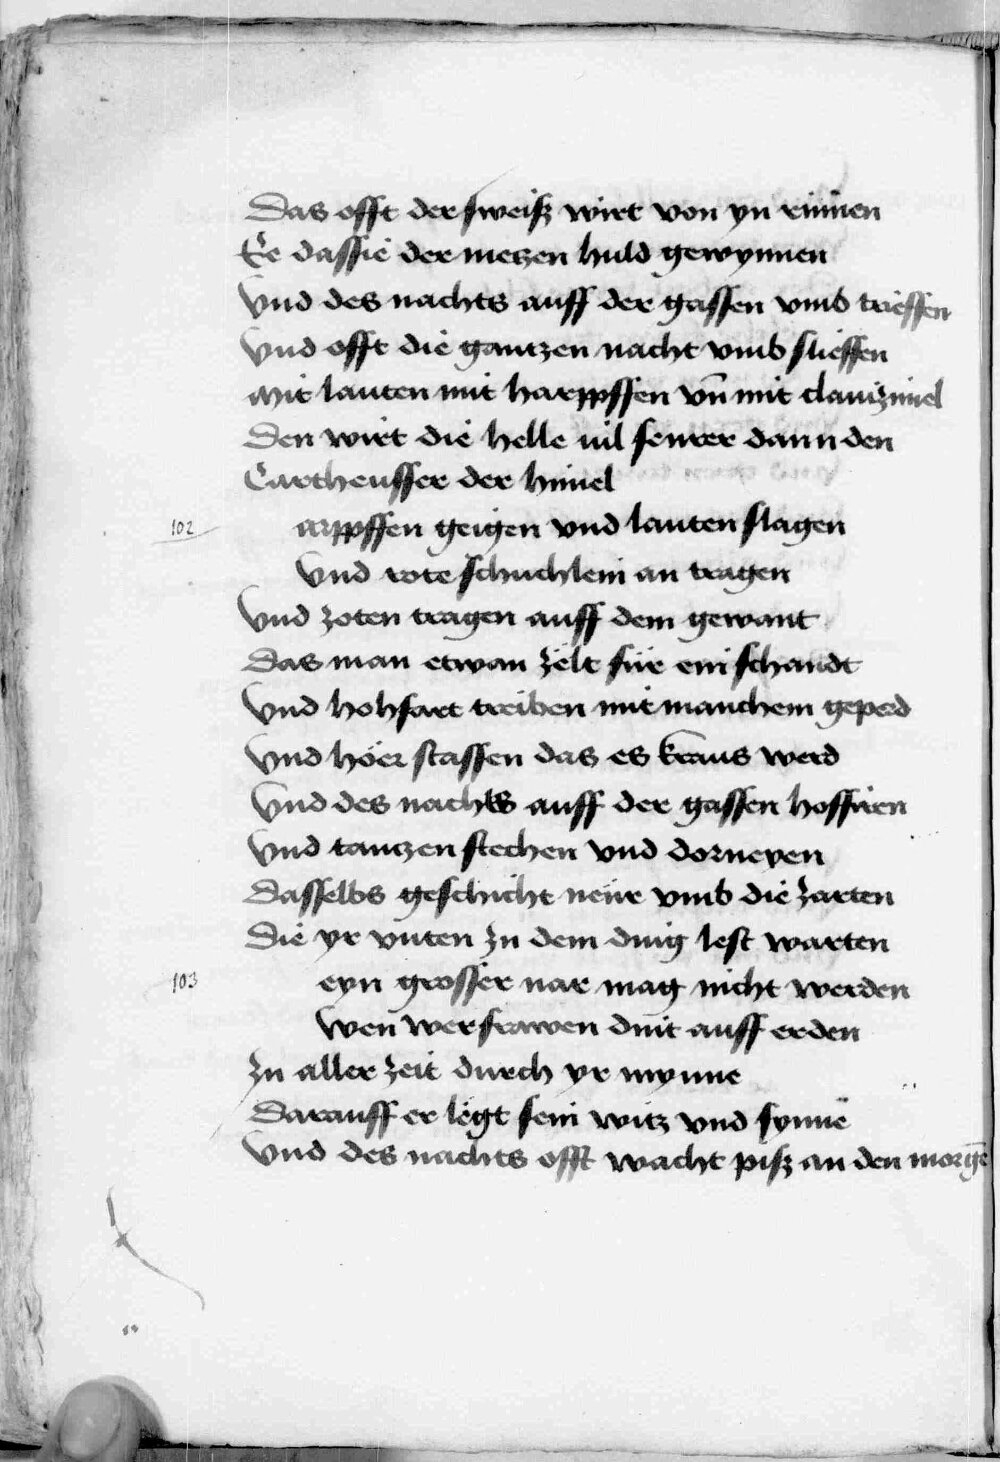 Das offt der sweiß wirt von yn rinnen
Ee dassie der metzen huld gewynnen
Vnd des nachts auff der gassen vmb trieffen
Vnd offt die gantzen nacht vmb slieffen
Mit lauten mit harppffen vñ mit clauizimel
Den wirt die helle uil sewrer dann den
Cartheusser der himel
102 arppffen geigen vnd lauten slagen
Vnd rote schuchlein an tragen
Vnd zoten tragen auff dem gewant
Das man etwan zelt für ein schandt
Vnd hohfart treiben mit manchem geperd
Vnd höer staffen das es kraus werd
Vnd des nachts auff der gassen hoffiren
Vnd tantzen stechen vnd dorneyen
Dasselbs geschicht neür vmb die zarten
Die yr vnten zu dem ding lest warten
103 eyn grosser nar mag nicht werden
Wen wer frawen dint auff erden
Zu aller zeit durch yr mynne
Darauff er legt sein witz vnd synne
Vnd des nachts offt wacht piß an den morgē